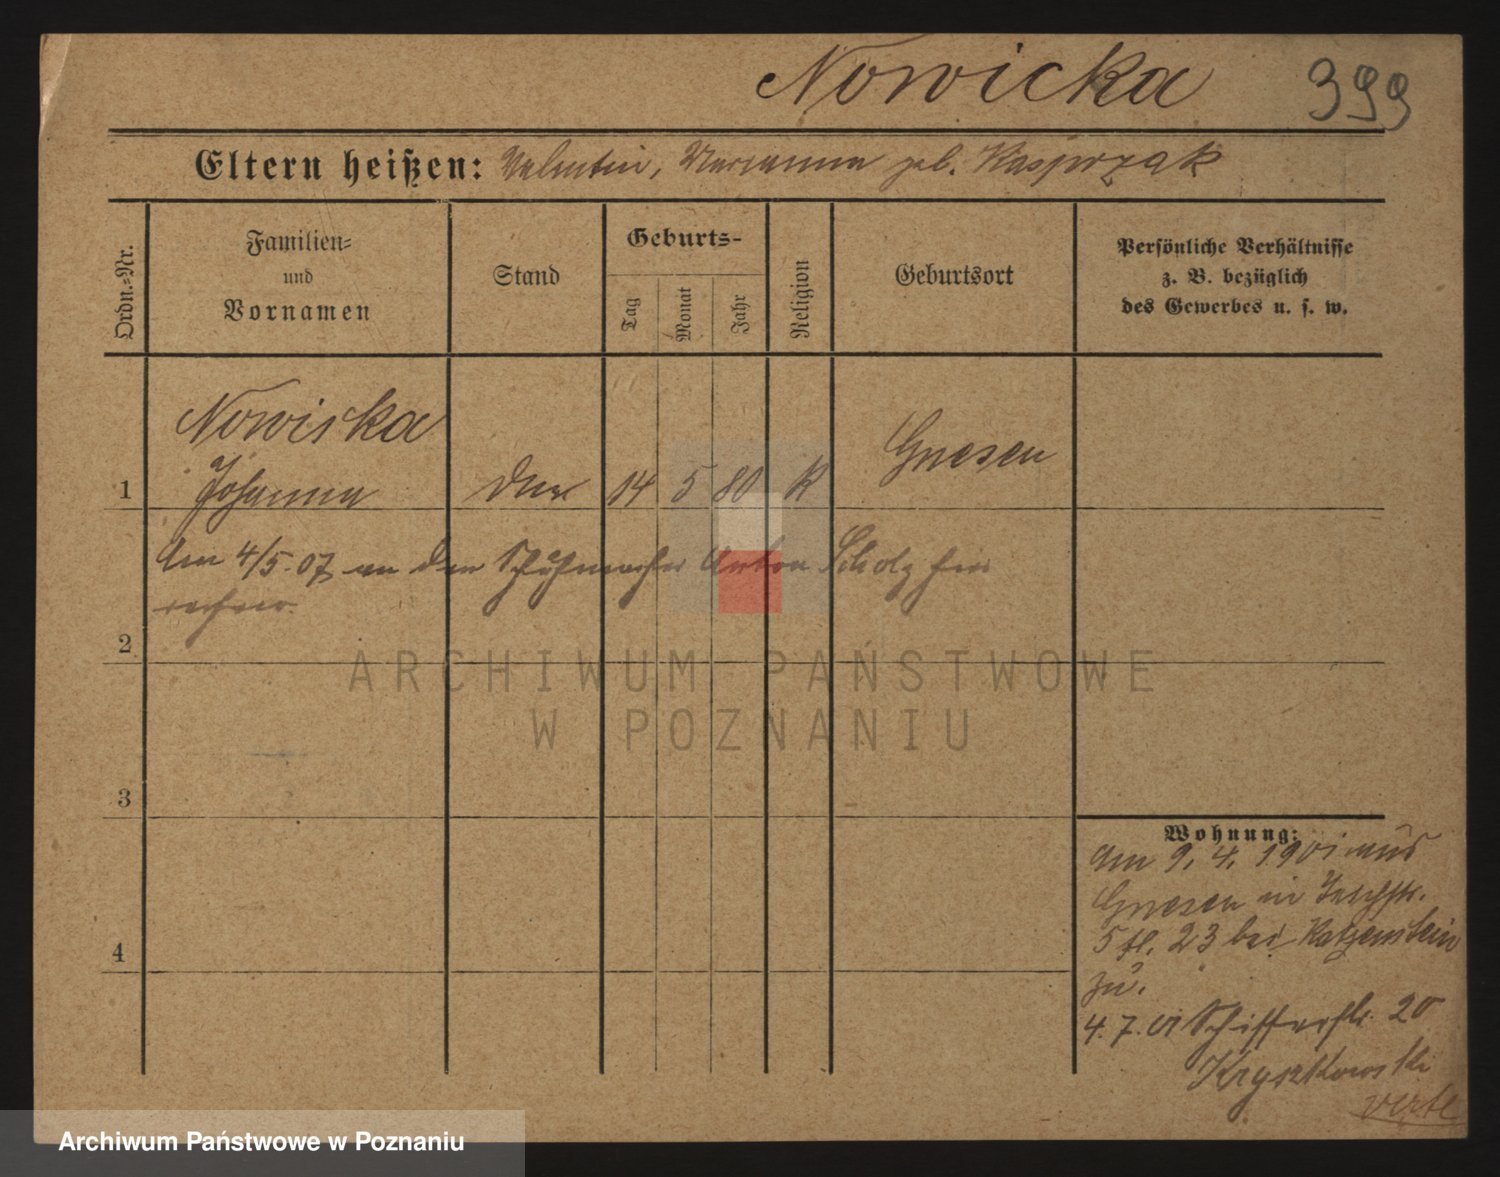 Nowicka 399
Eltern heißen: Valentin, Marianna geb. Kasprzak
Ordn.-Nr.
Familien-
und
Vornamen
Stand
Geburts-
Tag
Monat
Jahr
Religion
Geburtsort
Persönliche Verhältnisse
z. B. bezüglich
des Gewerbes u. s. w.
Nowicka
1 Johanna 14 5 80 K Gnesen
Am 4/5.07 an den Schuhmacher Anton Scholz
2
ARCHIWUM PAŃSTWOWE
W POZNANIU
3
4
Wohnung:
Am 9. 4. 1901 aus
Gnesen in
5 23 bei Katzenstein
zu.
4. 7. 01 Schifferstr. 20
Kryszkowski
verte
Archiwum Państwowe w Poznaniu